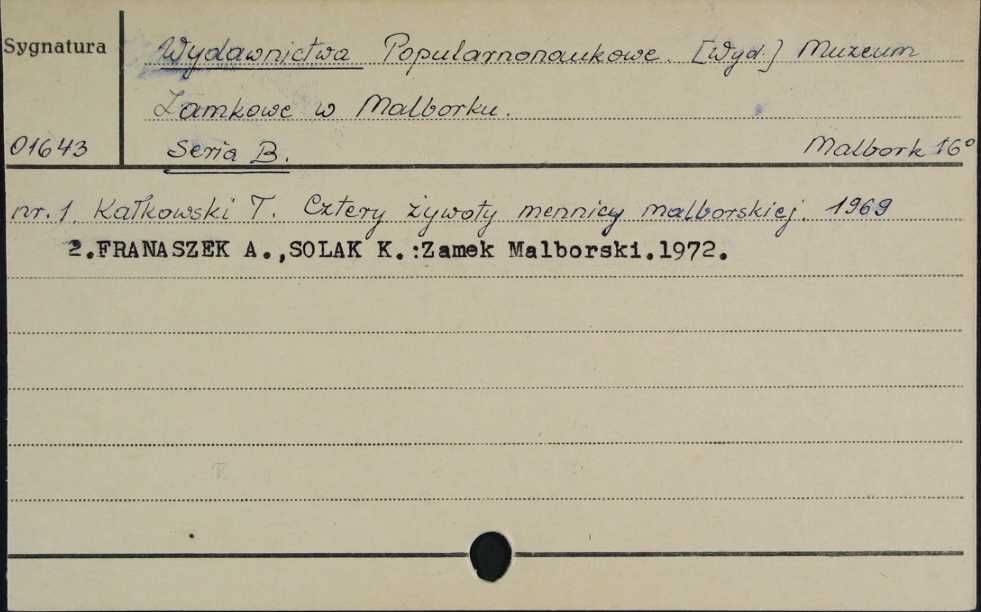 Sygnatura
Wydawnictwa Popularnonaukowe. [Wyd.] Muzeum
Zamkowe w Malborku.
01643
Seria B.
Malbork 16°
nr. 1. Kałkowski T. Cztery żywoty mennicy malborskiej. 1969
2.FRANASZEK A.,SOLAK K.:Zamek Malborski.1972.